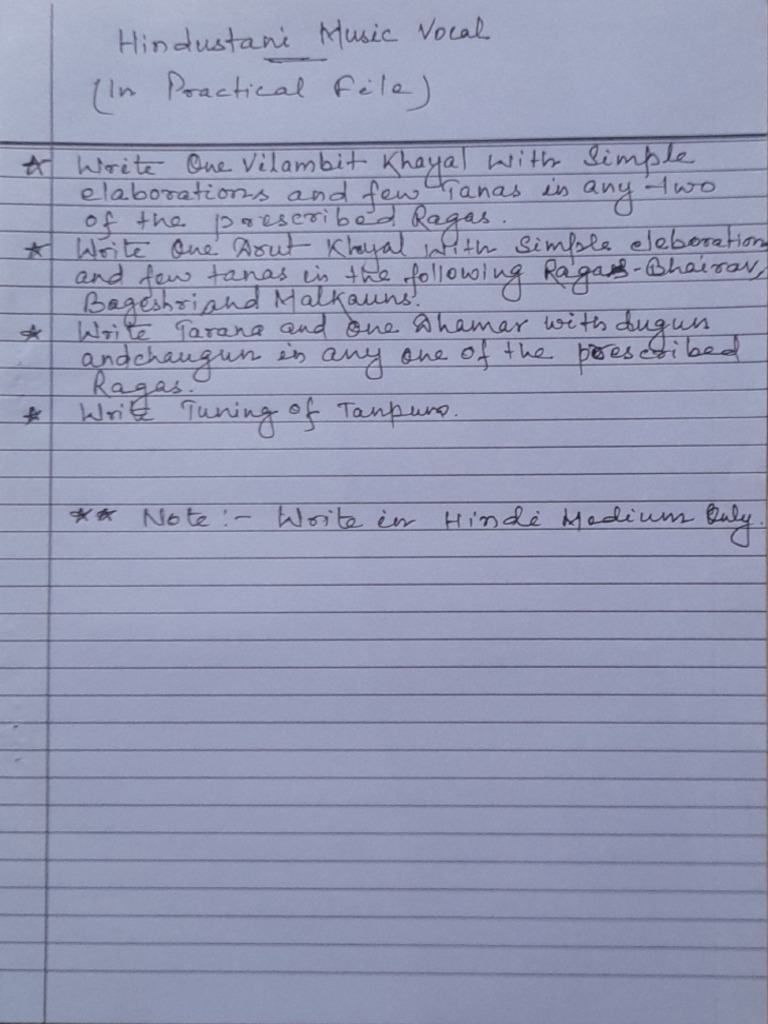 Hindustani Music Vocal
(In Practical File)
☆ Write One Vilambit Khayal with Simple
elaborations and few Tanas in any two
of the prescribed Ragas.
★ Write One Drut Khayal with Simple elaboration
and few tanas in the following Ragas - Bhairav,
Bageshri and Malkauns.
★ Write Tarana and One Dhamar with dugun
and chaugun in any one of the prescribed
Ragas.
★ Write Tuning of Tanpura.
★★ Note :- Write in Hindi Medium Only.